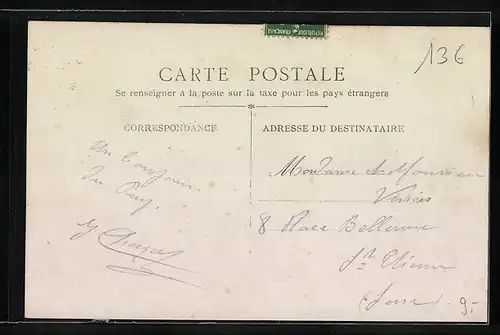 REPUBLIQUE FRANÇAISE
13€
CARTE POSTALE
Se renseigner à la poste sur la taxe pour les pays étrangers
CORRESPONDANCE
ADRESSE DU DESTINATAIRE
Un bonjour
du Puy.
Madame et Monsieur
8 Place Bellevue
St Etienne
Loire
9.-